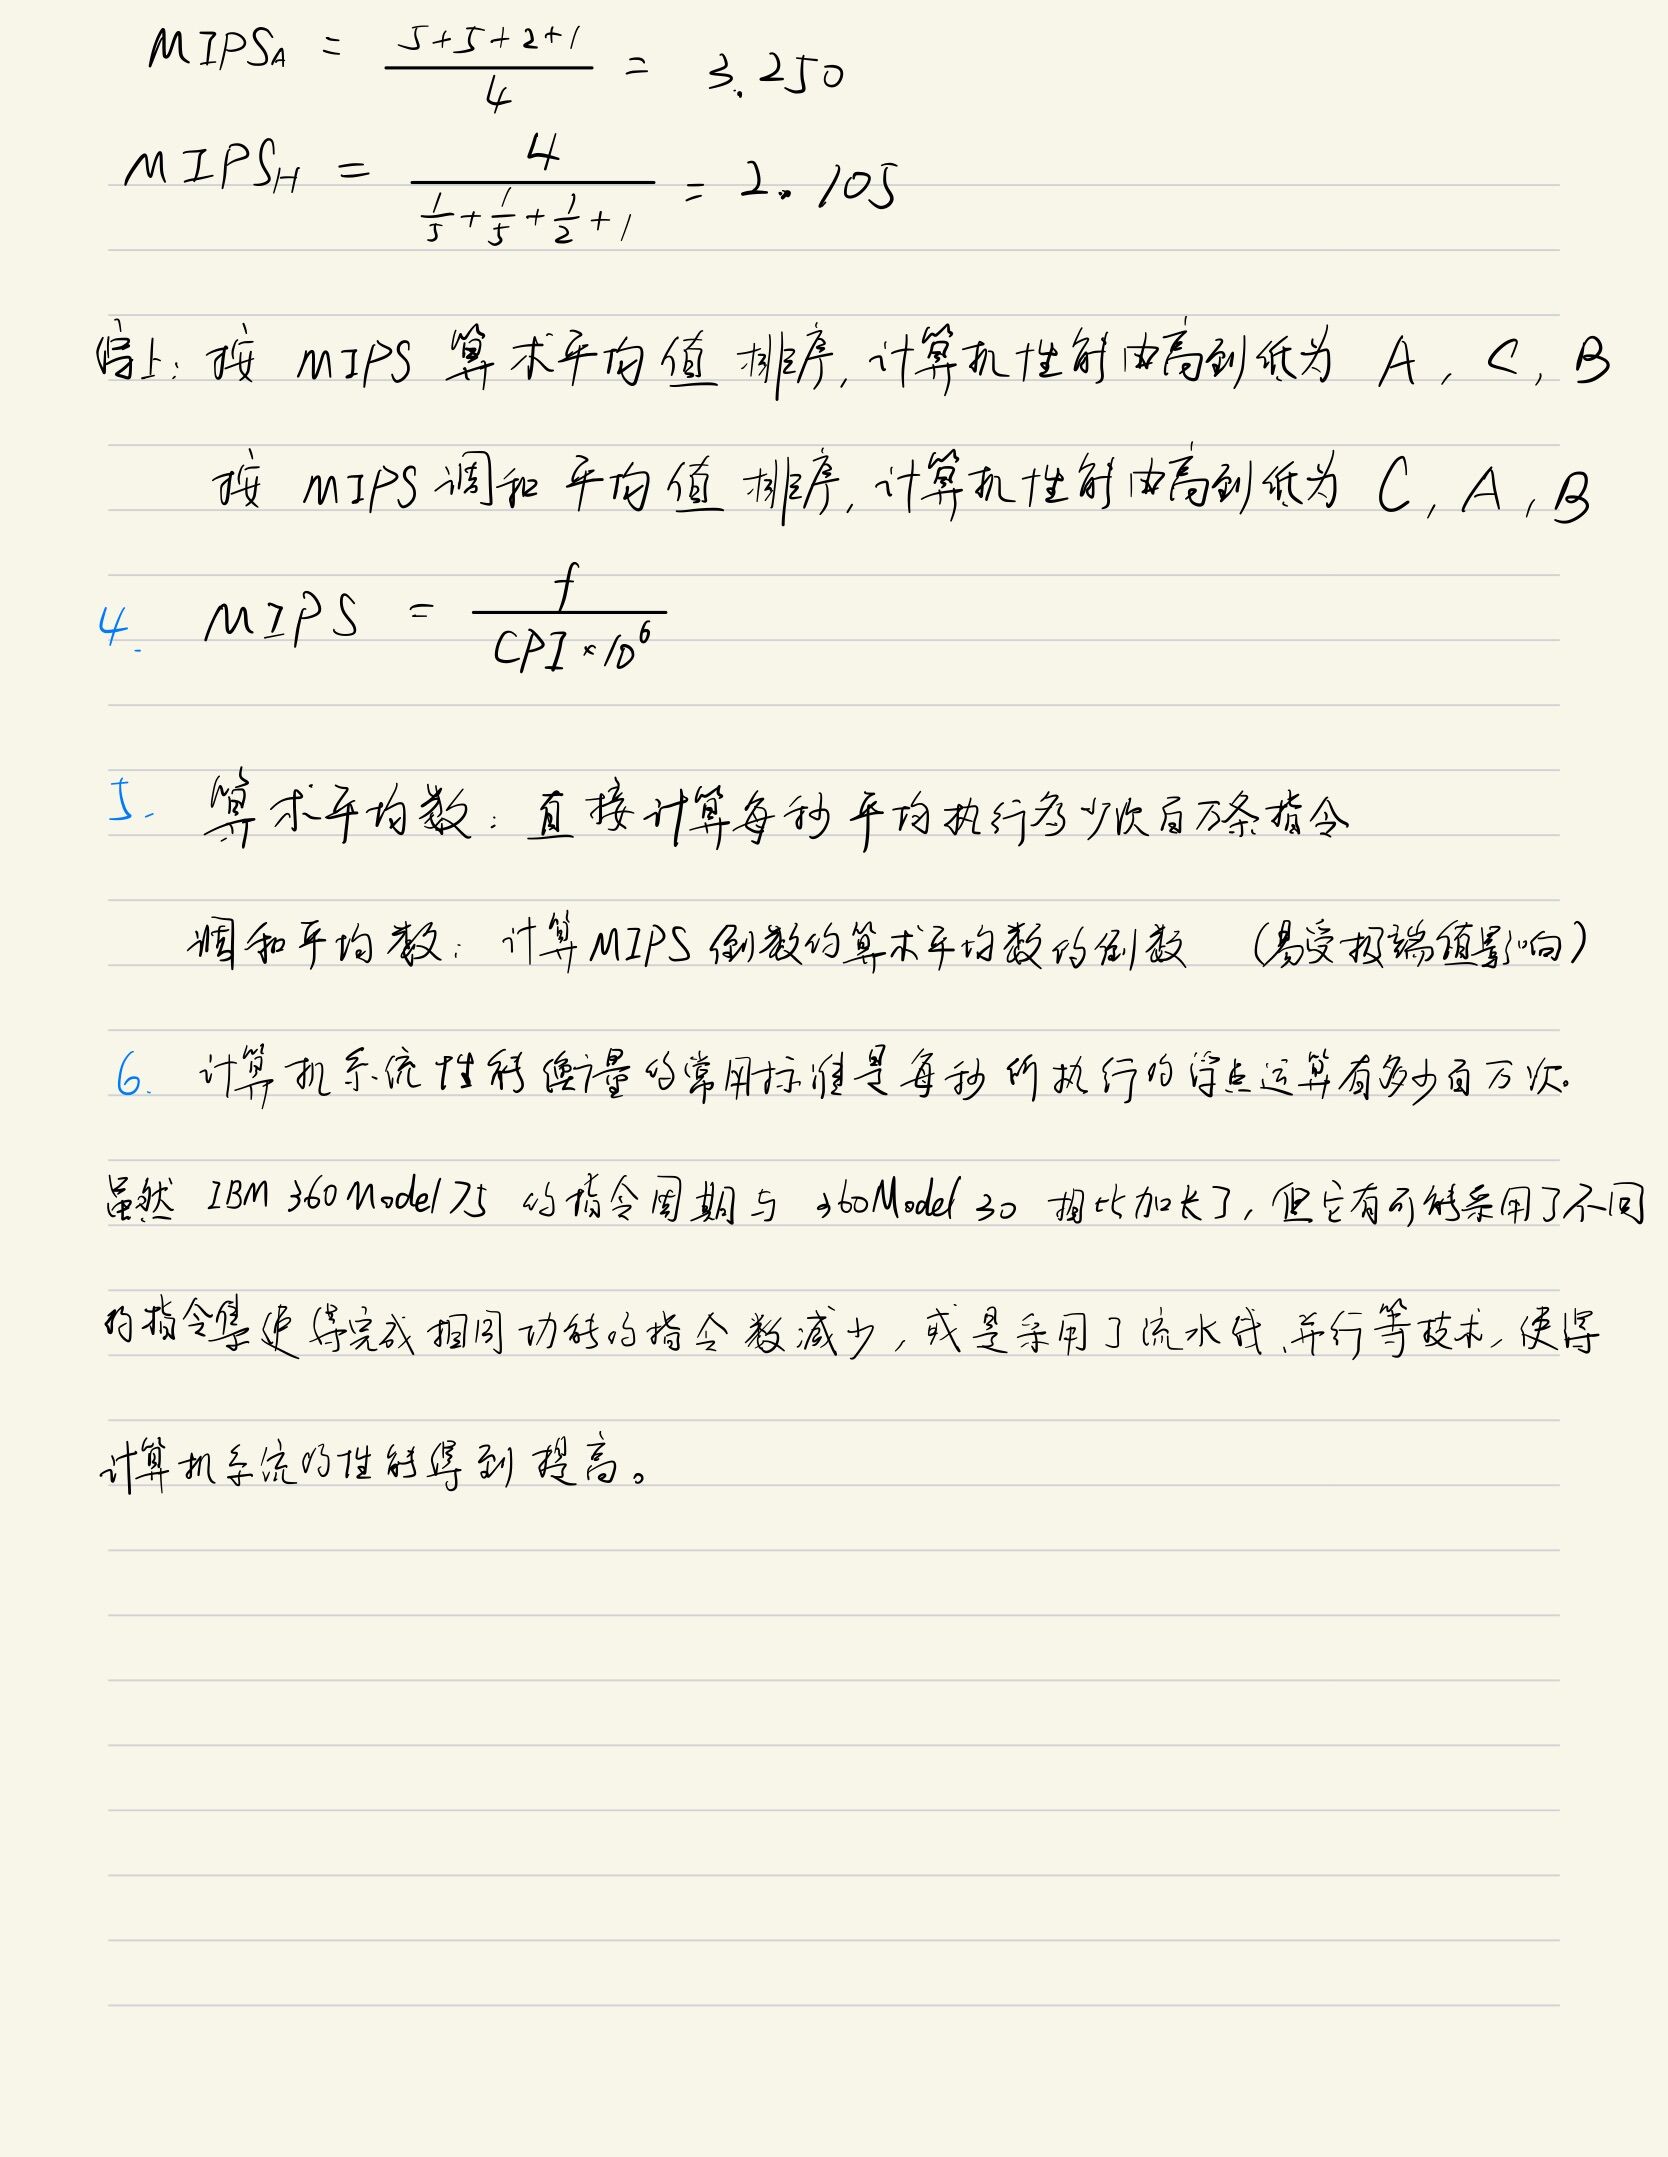 MIPS_A = (5+5+2+1)/4 = 3.250
MIPS_H = 4/(1/5+1/5+1/2+1) = 2.105
综上: 按 MIPS 算术平均值 排序, 计算机性能由高到低为 A, C, B
按 MIPS 调和平均值 排序, 计算机性能由高到低为 C, A, B
4. MIPS = f/(CPI×10^6)
5. 算术平均数: 直接计算每秒平均执行多少次百万条指令
调和平均数: 计算MIPS倒数的算术平均数的倒数 (易受极端值影响)
6. 计算机系统性能衡量的常用标准是每秒所执行的浮点运算有多少百万次。
虽然 IBM 360 Model 75 的指令周期与 360 Model 30 相比加长了, 但它有可能采用了不同
的指令集使得完成相同功能的指令数减少, 或是采用了流水线、并行等技术, 使得
计算机系统的性能得到提高。